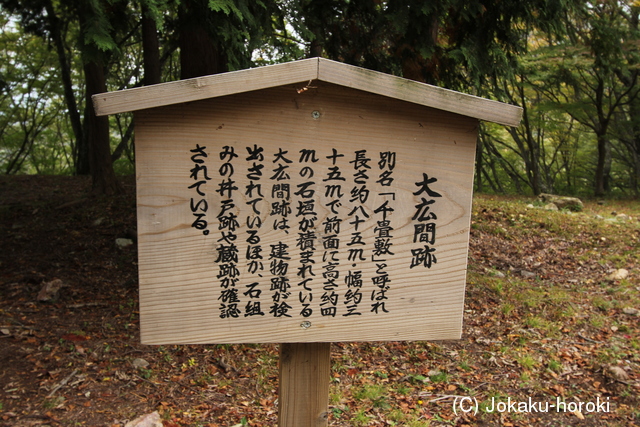 大広間跡
別名「千畳敷」と呼ばれ
長さ約八十五m・幅約三
十五mで前面に高さ約四
mの石垣が積まれている
大広間跡は、建物跡が検
出されているほか、石組
みの井戸跡や蔵跡が確認
されている。
(C) Jokaku-horoki